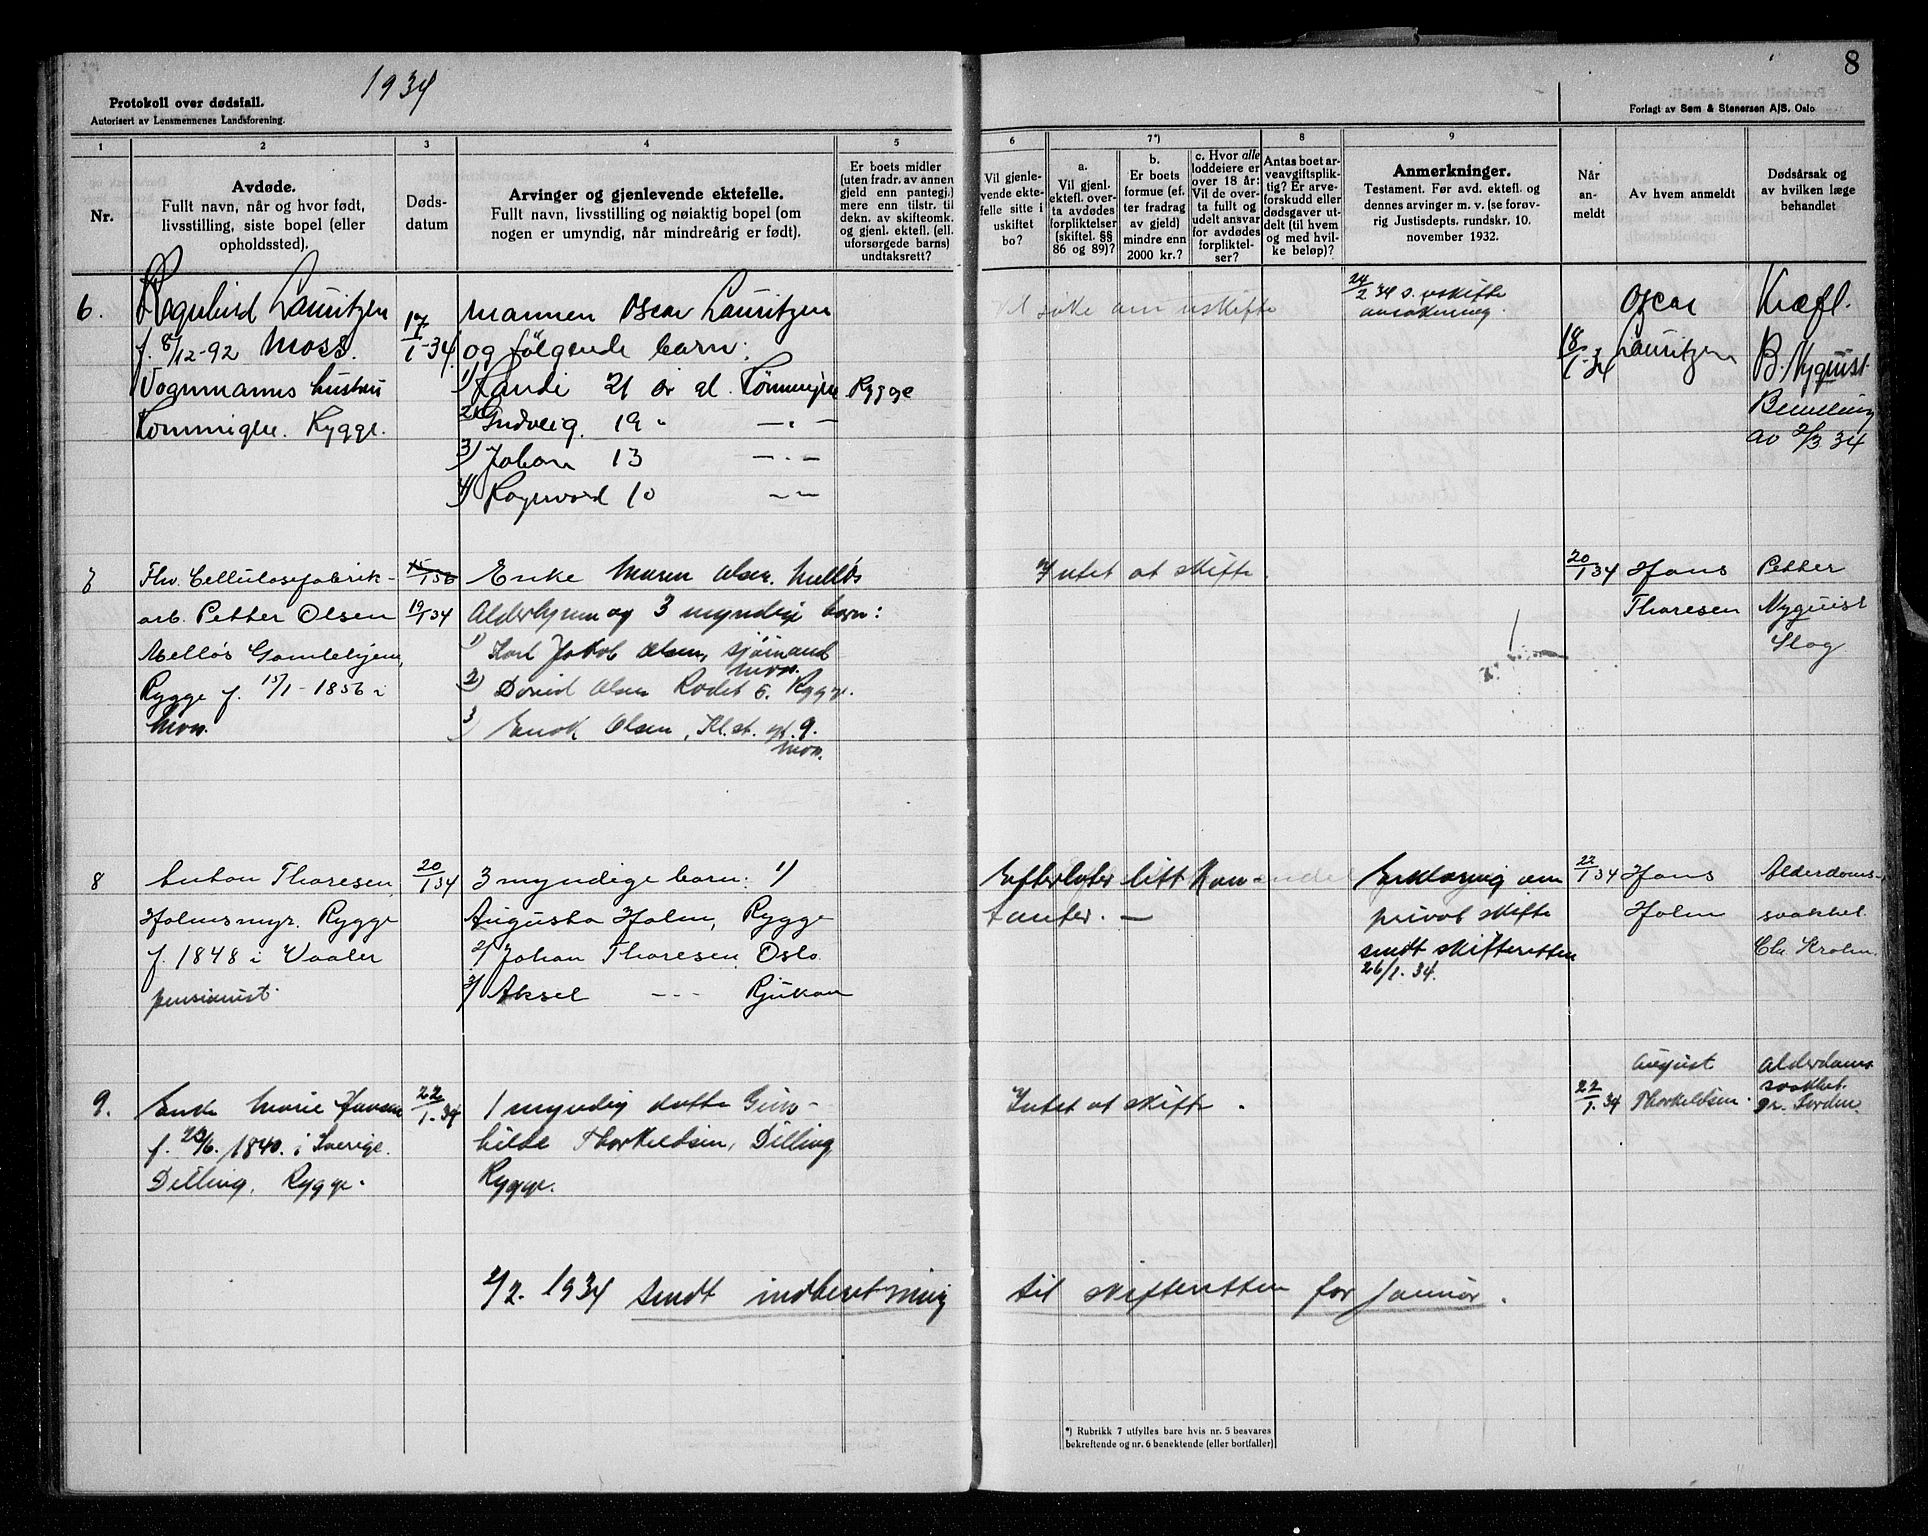 1934
8
Protokoll over dødsfall.
Autorisert av Lensmennenes Landsforening.
Forlagt av Sem & Stenersen A/S. Oslo
1
2
3
4
5
6
7*)
8
9
Nr.
Avdøde.
Fullt navn, når og hvor født,
livsstilling, siste bopel (eller
opholdssted).
Døds-
datum
Arvinger og gjenlevende ektefelle.
Fullt navn, livsstilling og nøiaktig bopel (om
nogen er umyndig, når mindreårig er født).
Er boets midler
(uten fradr. av annen
gjeld enn pantegj.)
mere enn tilstr. til
dekn. av skifteomk.
og gjenl. ektefl. (ell.
uforsørgede barns)
undtaksrett?
Vil gjenle-
vende ekte-
felle sitte i
uskiftet
bo?
a.
Vil gjenl.
ektefl. over-
ta avdødes
forpliktelser
(skiftel. §§
86 og 89)?
b.
Er boets
formue (ef.
ter fradrag
av gjeld)
mindre enn
2000 kr.?
c. Hvor alle
loddeiere er
over 18 år:
Vil de over-
ta fullt og
udelt ansvar
for avdødes
forpliktel-
ser?
Antas boet ar-
veavgiftsplik-
tig? Er arve-
forskudd eller
dødsgaver ut-
delt (til hvem
og med hvil-
ke beløp)?
Anmerkninger.
Testament. Før avd. ektefl. og
dennes arvinger m. v. (se forøv-
rig Justisdepts. rundskr. 10.
november 1932.
Når
an-
meldt
Av hvem anmeldt
Dødsårsak og
av hvilken læge
behandlet
6.
Ragnhild Lauritzen
f. 8/12-92 Moss.
Vognmanns hustru
Rygge.
17/1-34
Mannen Oscar Lauritzen
og følgende barn:
1) Randi 21 år gl. Rygge
2) 19 " — " —
3) Johan 13 — " —
4) Ragnvard 10 — " —
Vil søke om uskifte
24/2 34 s. uskifte
ansøkning.
18/1-34
Oscar
Lauritzen
Kræft.
B. Nyquist
Bevilling
av 2/3 34
7
Fhv. Cellulosefabrik-
arb. Petter Olsen
Melløs Gamlehjem,
Rygge f. 15/1-1856 i
Moss.
15/1 56
19/1 34
Enke Maren Olsen. Melløs
Alderhjem og 3 myndige barn:
1) Karl Jakob Olsen, sjømand
Moss.
2) David Olsen Rødet 6. Rygge.
3) Enok Olsen, Kl. st. gt. 9.
Moss.
Intet at skifte.
20/1 34
Hans
Thoresen
Petter
Nyquist
Slag
8
Anton Thoresen,
Holmsmyr. Rygge
f. 1848 i Vaaler
pensionist.
20/1 34
3 myndige barn: 1)
Augusta Holm, Rygge
2) Johan Thoresen, Oslo.
3) Aksel - - - Rjukan
Efterlater litt kon-
tanter. —
Erklæring om
privat skifte
sendt skifteretten
26/1. 34.
22/1 34
Hans
Holm
Alderdoms-
svakhet.
Chr. Krohn.
9.
Enke Marie Hansen
f. 23/6. 1840. i Sverige.
Dilling. Rygge.
22/1. 34
1 myndig datter Gun-
hilde Thorkildsen, Dilling,
Rygge.
Intet at skifte.
22/1. 34
August
Thorkildsen.
Alderdoms
svakhet.
Dr.
2/2. 1934 sendt indberetning til skifteretten for januar.
*) Rubrikk 7 utfylles bare hvis nr. 5 besvares
bekreftende og nr. 6 benektende (eller bortfaller)